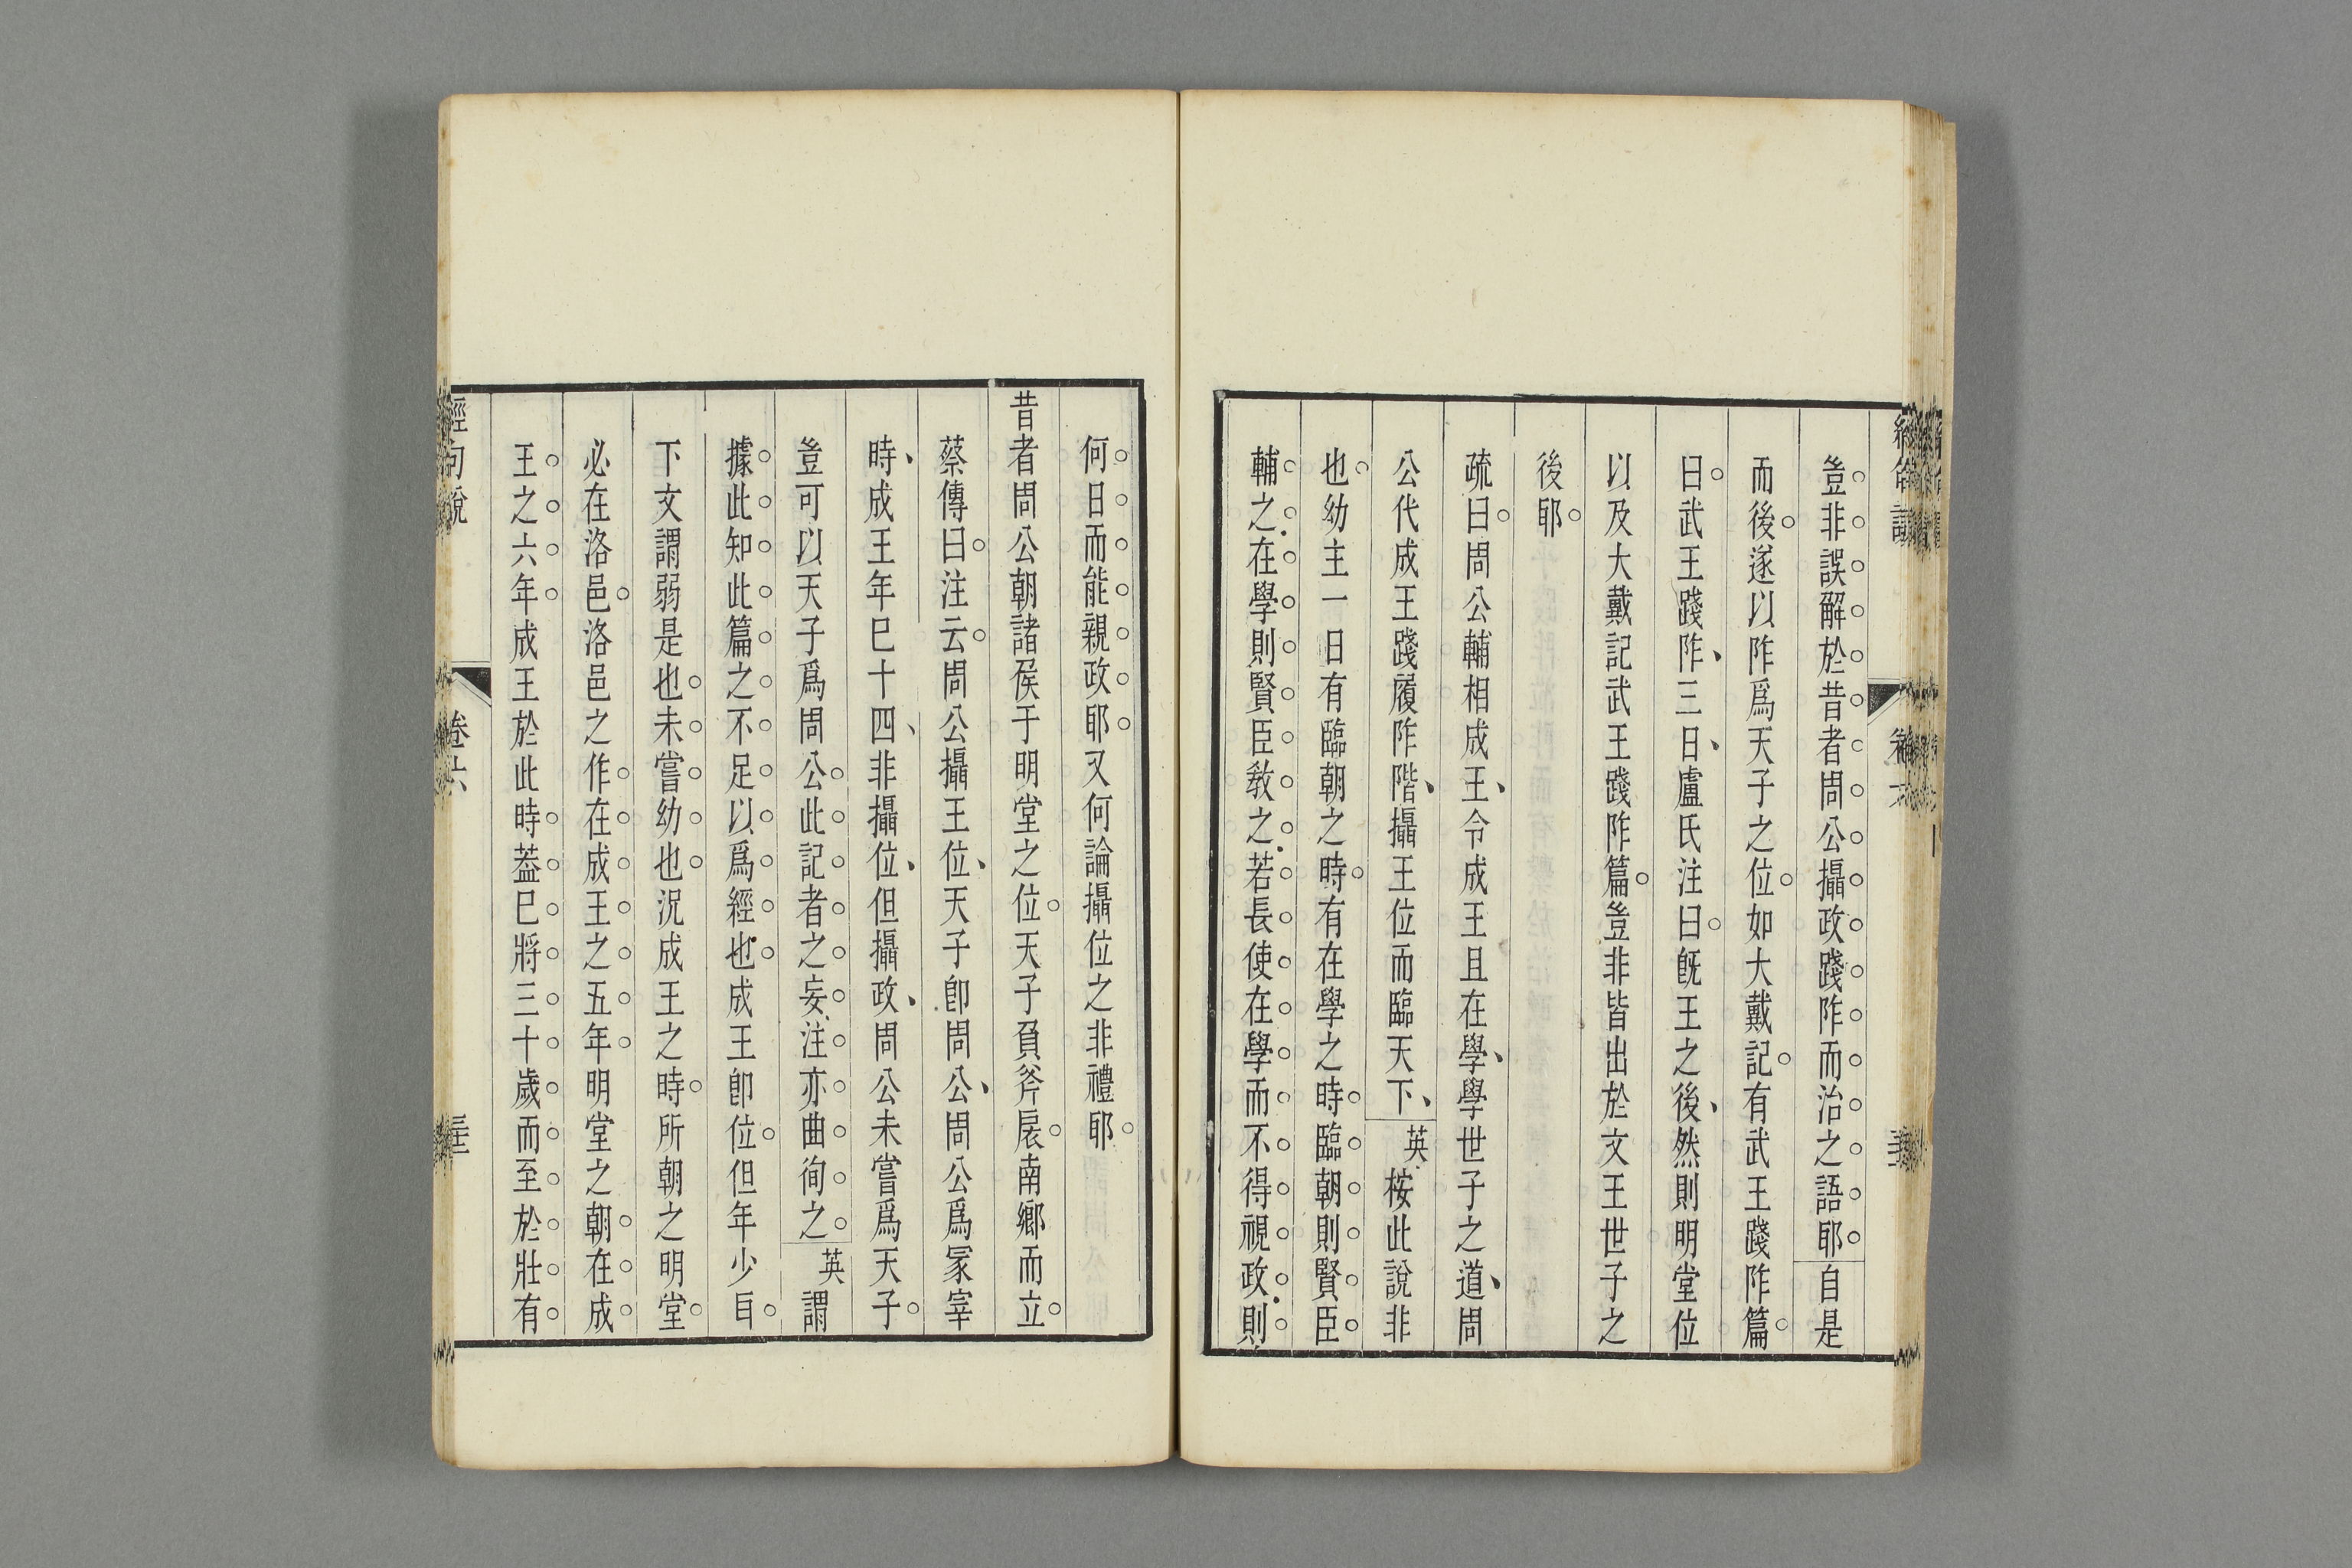 豈非誤解於昔者周公攝政踐阼而治之語耶自是
而後遂以阼爲天子之位如大戴記有武王踐阼篇
曰武王踐阼三日盧氏注曰旣王之後然則明堂位
以及大戴記武王踐阼篇豈非皆出於文王世子之
後耶
疏曰周公輔相成王令成王且在學學世子之道周
公代成王踐履阼階攝王位而臨天下英桉此說非
也幼主一日有臨朝之時有在學之時臨朝則賢臣
輔之在學則賢臣敎之若長使在學而不得視政則
何日而能親政耶又何論攝位之非禮耶
昔者周公朝諸侯于明堂之位天子負斧扆南鄉而立
蔡傳曰注云周公攝王位天子卽周公周公爲冢宰
時成王年巳十四非攝位但攝政周公未嘗爲天子
豈可以天子爲周公此記者之妄注亦曲徇之英謂
據此知此篇之不足以爲經也成王卽位但年少㠯
下文謂弱是也未嘗幼也況成王之時所朝之明堂
必在洛邑洛邑之作在成王之五年明堂之朝在成
王之六年成王於此時蓋巳將三十歲而至於壯有
經句說
卷六